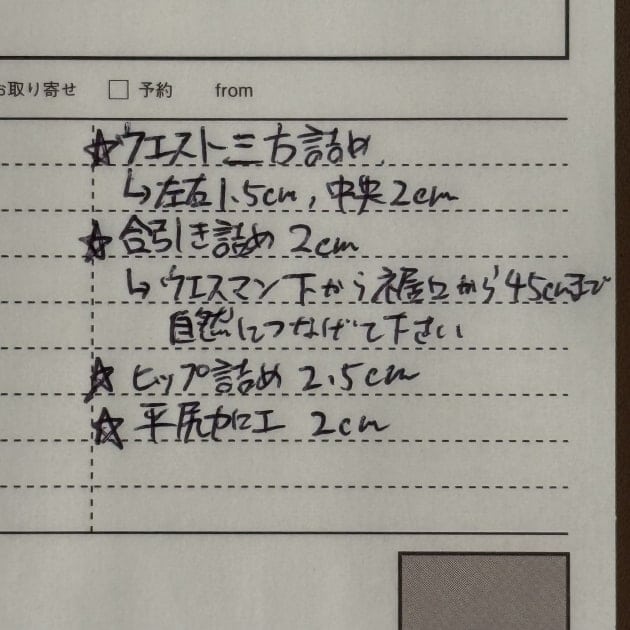 お取り寄せ □ 予約 from
☆ウエスト三方詰め
↳左右1.5cm, 中央2cm
☆合引き詰め 2cm
↳ウエスマン下から裾口から45cmまで
自然につなげて下さい
☆ヒップ詰め 2.5cm
☆平尻加工 2cm